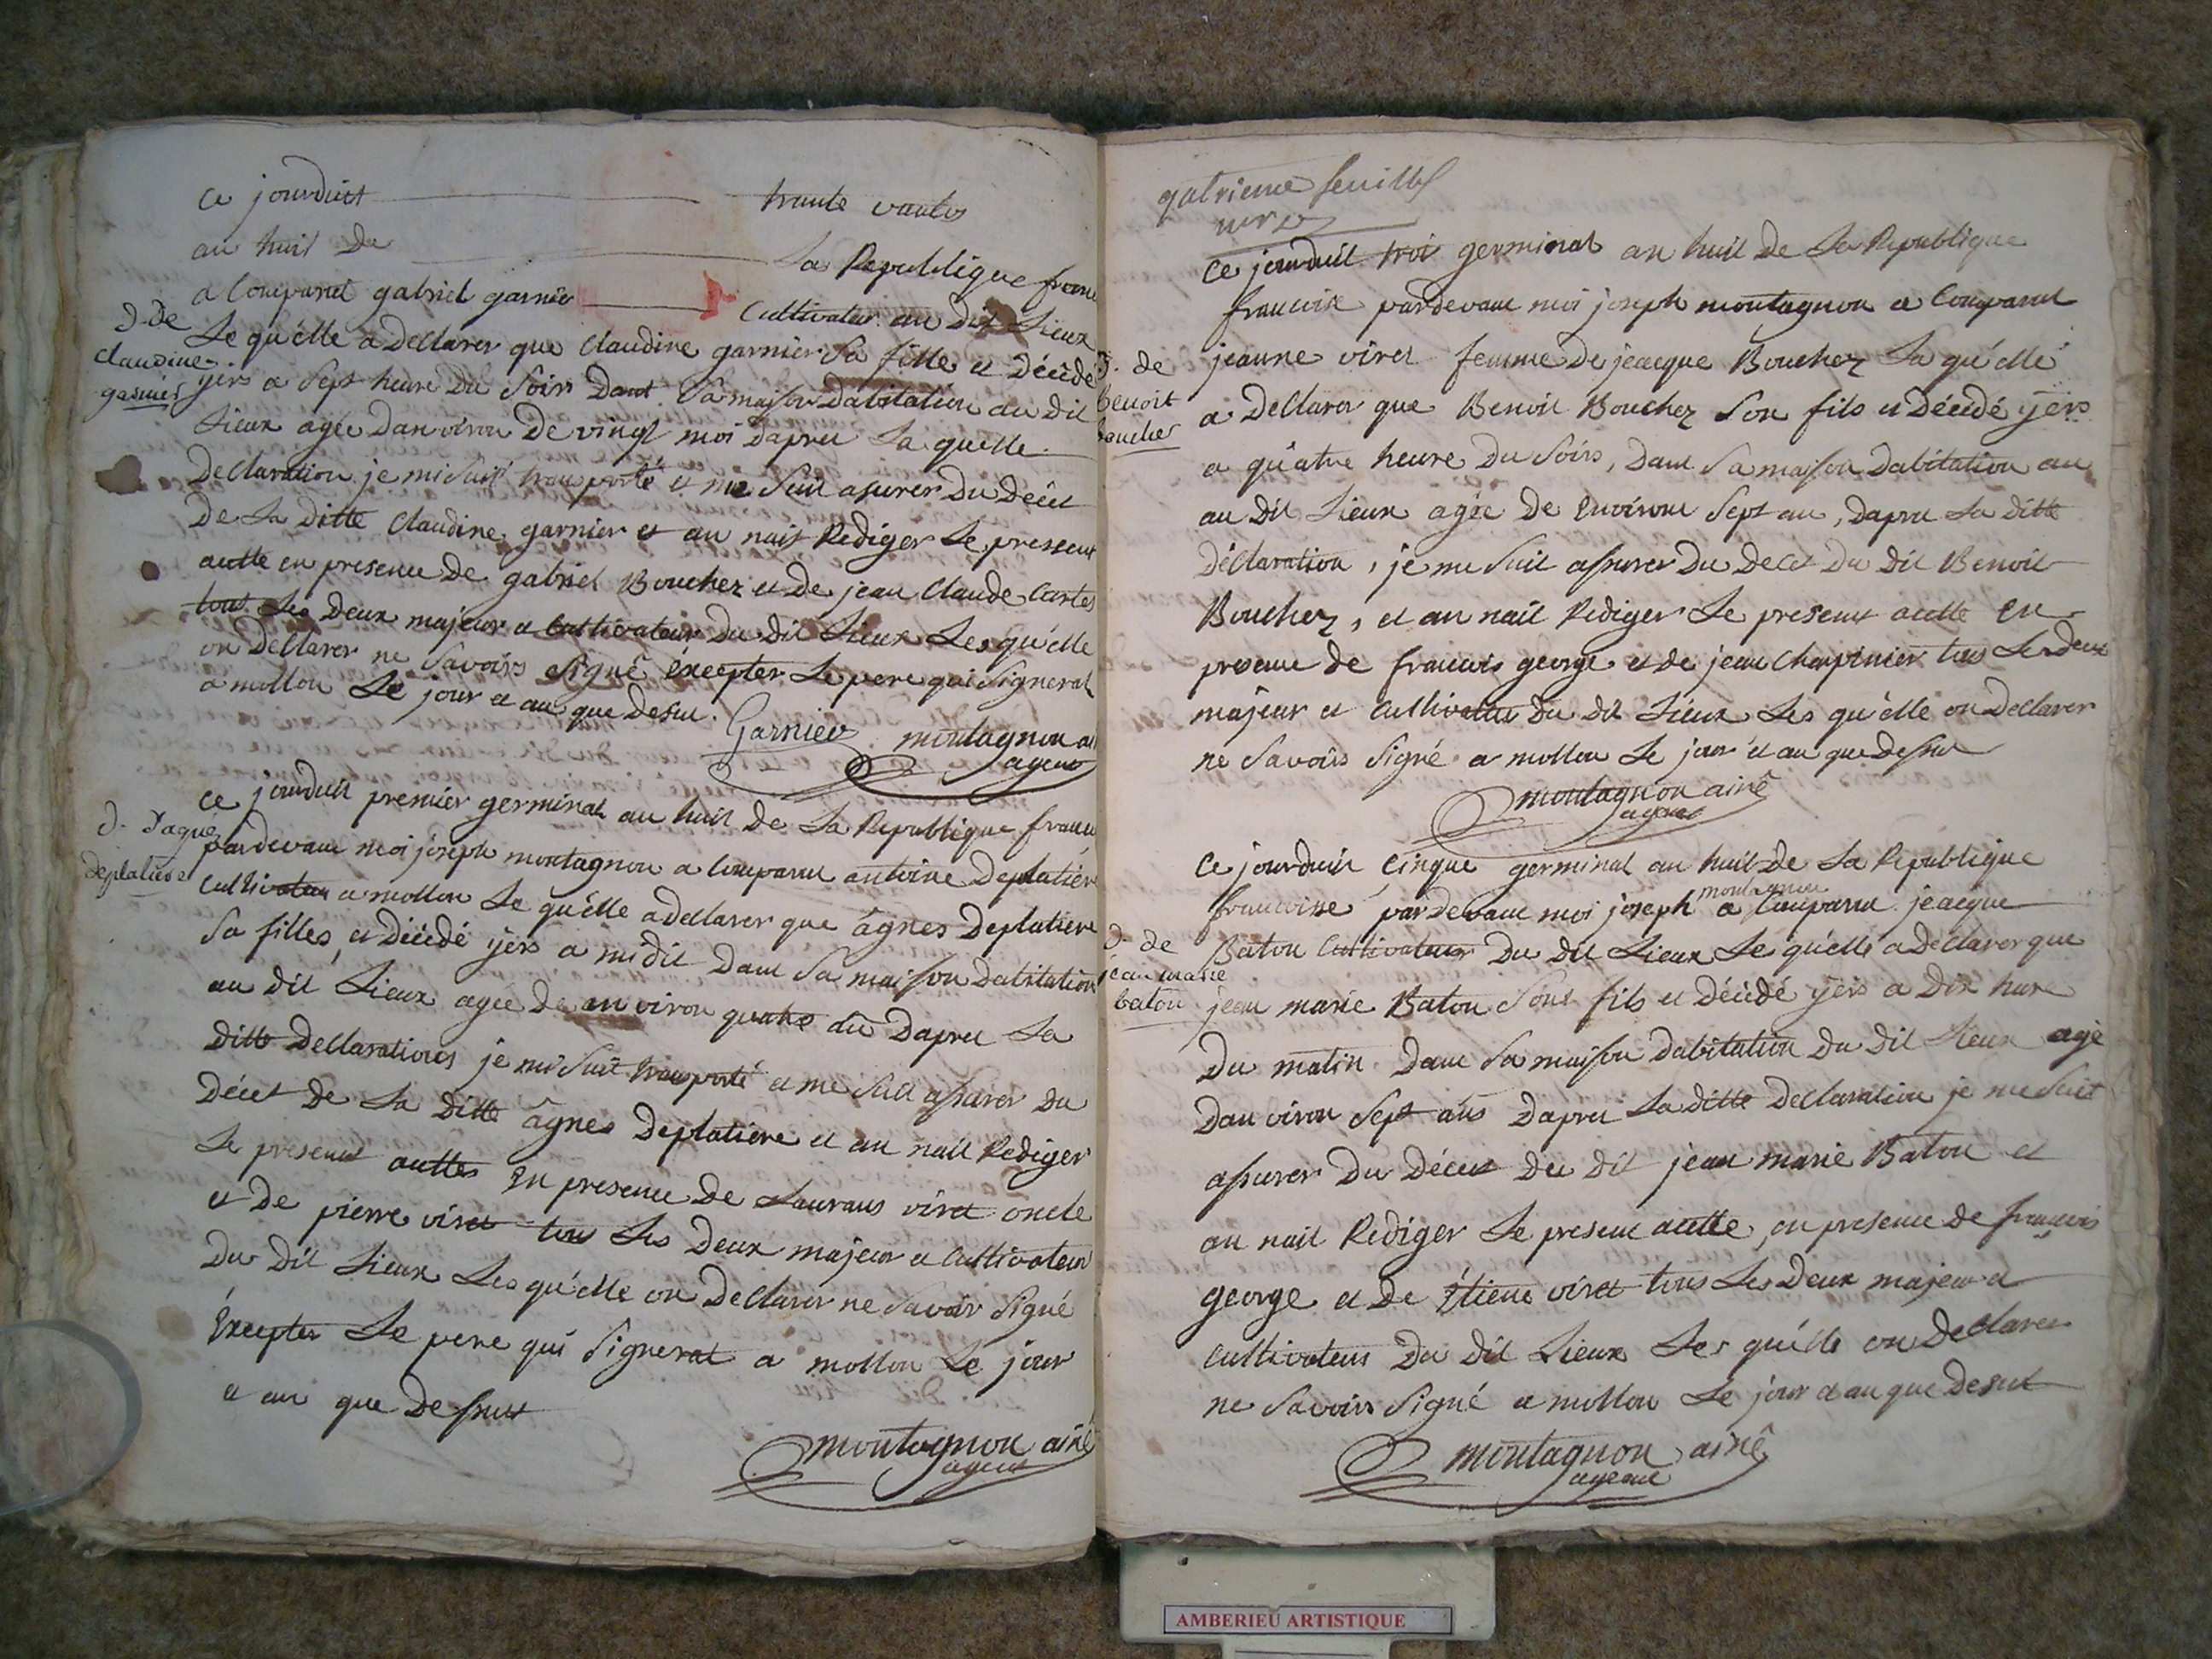 ce jourduit trante vantos
an huit de La Republique franc
a Comparut gabriel garnier Cultivateur au dit Lieux
d. de
claudine
garnier
Le qu'elle a declarer que Claudine garnier Sa fille et décédé
yers a Sept heure du Soirs Dant Sa maison Dabitation au dit
Lieux agée Danviron De vingt moi Dapreu La quelle
Declaration je mi Suit tranporté et me Suit asurer Du décet
De La ditte Claudine garnier et an nait Rediger Le pressent
actte en presence de gabriel Boucher et de jean Claude Cartes
tout Les Deux majeur et Cultivateur Du dit Lieux Les qu'elle
on Declarer ne Savoirs Signé éxcepter Le pere qui Signerat
a mollon Le jour et an que Desu.
Garnier montagnon ai
agent
ce jourduit premier germinal an huit de La Republique franc
d. d'agnés
deplatiere
pardevant moi joseph montagnon a Comparu antoine Deplatiere
Cultivateur a mollon Le qu'elle a declarer que âgnes Deplatiere
Sa filles et décédé yers a midit Dant Sa maison Dabitation
au dit Lieux agée de anviron quatre an Dapreu La
ditte Declarations je mi Suit tranporté et me Suit assurer Du
Décet de La ditte âgnes Deplatiere et an nait Rediger
Le present acttes En presence De Laurans viret oncle
et de pierre viret tous Les Deux majeur et Cultivateur
Du dit Lieux Les qu'elle on Declarer ne Savoir Signé
Excepter Le pere qui Signerat a mollon Le jour
et an que Dessut
montagnon ainé
agent
qatrieme feuilles
Ce jourduit troi germinal an huit de La Republique
francoise pardevant moi joseph montagnon a Comparut
d. de
benoit
boucher
jeanne viret femme de jeacque Boucher La qu'elle
a Declarer que Benoit Boucher Son fils et Décédé yers
a qu'atre heure Du Soirs, Dant Sa maison Dabitation au
au dit Lieux agée De Environt Sept an, Dapreu La ditte
déClaration, je me Suit assurer Du Decet Du dit Benoit
Boucher, et an nait Rediger Le present actte en
presence de francois george et de jean Charpinier tous Les deux
majeur et Cultivateur Du dit Lieux Les qu'elle on Declarer
ne Savoirs Signé a mollon Le jour et an que Dessut
montagnon ainé
agent
Ce jourduit Cinque germinal an huit de La Republique
francoisse pardevant moi joseph montagnon a Comparu jeacque
d. de
jean marie
baton
Baton Cultivateur Du dit Lieux Le qu'elle a declarer que
jean marie Baton Sont fils et Décédé yers a Dix hure
Du matin Dant Sa maison Dabitation Du dit Lieux agé
Danviron Sept ans Dapreu La ditte Declaration je me Suit
assurer Du Décet du dit jean marie Baton et
an nait Rediger Le present actte, en presence de francois
george et De Étiene viret tous Les Deux majeur et
Cultivateurs Du dit Lieux Les qu'elle on Declarer
ne Savoirs Signé a mollon Le jour et an que Desut
montagnon ainé
agent
AMBERIEU ARTISTIQUE